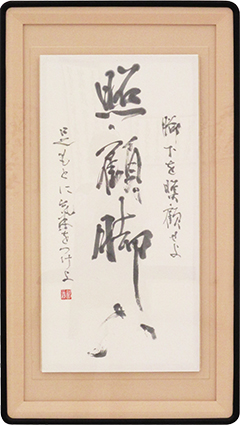 脚下を照顧せよ
照顧脚下
足もとに気をつけよ